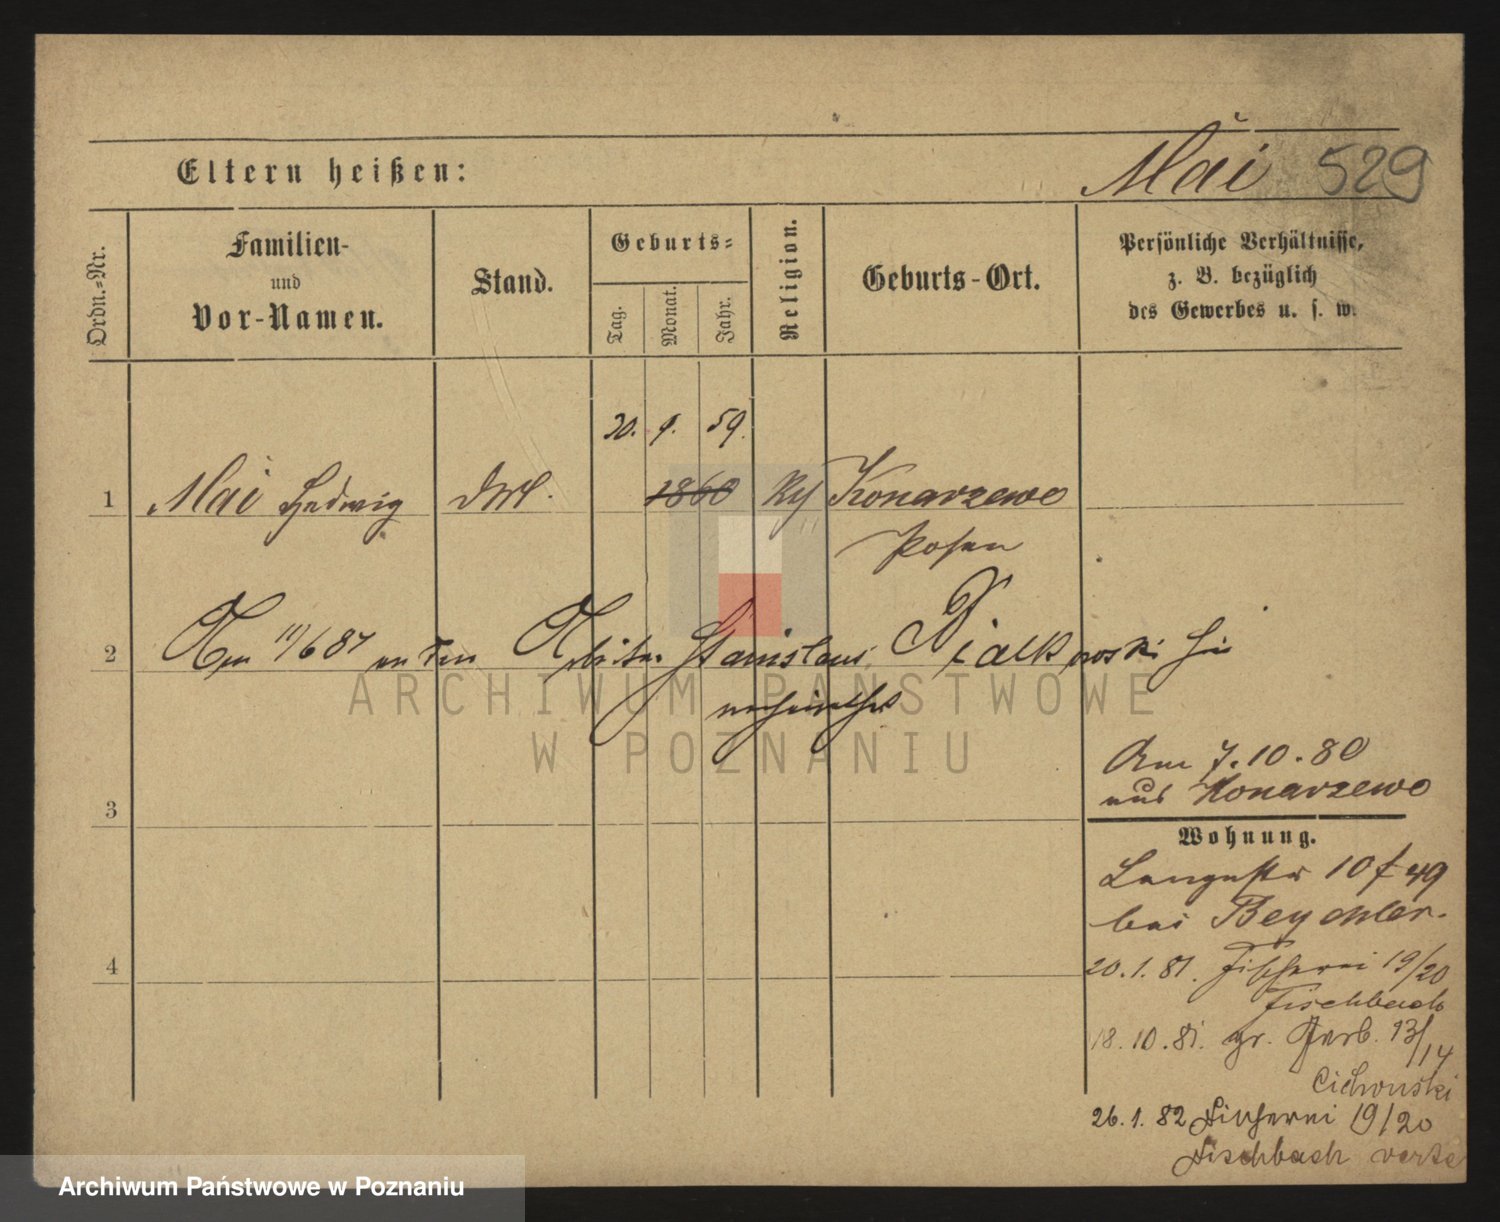 Eltern heißen:
Mai 529
Ordn.-Nr.
Familien-
und
Vor-Namen.
Stand.
Geburts-
Tag.
Monat.
Jahr.
Religion.
Geburts-Ort.
Persönliche Verhältnisse,
z. B. bezüglich
des Gewerbes u. s. w.
20. 9. 59.
1 Mai Hedwig 1860 Konarzewo
Posen
2 an den Arbeiter Stanislaus hier
verheirathet
ARCHIWUM PAŃSTWOWE
W POZNANIU
Am 7.10.80
aus Konarzewo
3
Wohnung.
Langestr 10 49
bei
4
20.1.81. Fischerei 19/20
Fischbach
18.10.81. gr. Gerb. 13/14
Cichonski
26.1.82 Fischerei 19/20
Fischbach verte
Archiwum Państwowe w Poznaniu